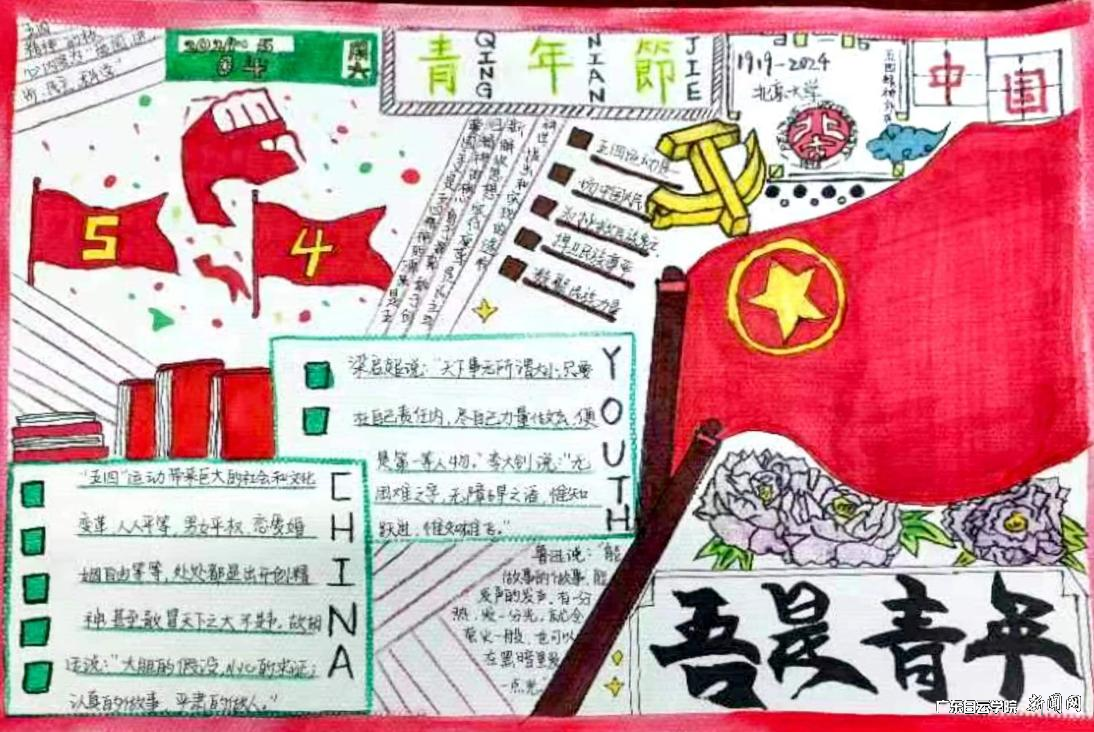 五四
2024.5
04
周六
青年節
QING
NIAN
JIE
1919-2024
北京大学
中国
5
4
五四运动是一
切中国人民
为拯救民族危
捍卫民族尊严
凝聚民族力量
梁启超说：“天下事无所谓大小，只要
在自己责任内，尽自己力量做去，便
是第一等人物。”李大钊说：“无
困难之字，无障碍之语，惟知
跃进，惟知雄飞。”
YOUTH
“五四”运动带来巨大的社会和文化
变革，人人平等，男女平权，恋爱婚
姻自由等等，处处都是出开创精
神甚至敢冒天下之大不韪，故胡
适说：“大胆的假设，小心的求证；
认真的做事，严肃的做人。”
CHINA
鲁迅说：“能
做事的做事，能
发声的发声。有一分
热，发一分光，就令
萤火一般，也可以
在黑暗里发
一点光。”
吾是青年
广东白云学院 新闻网